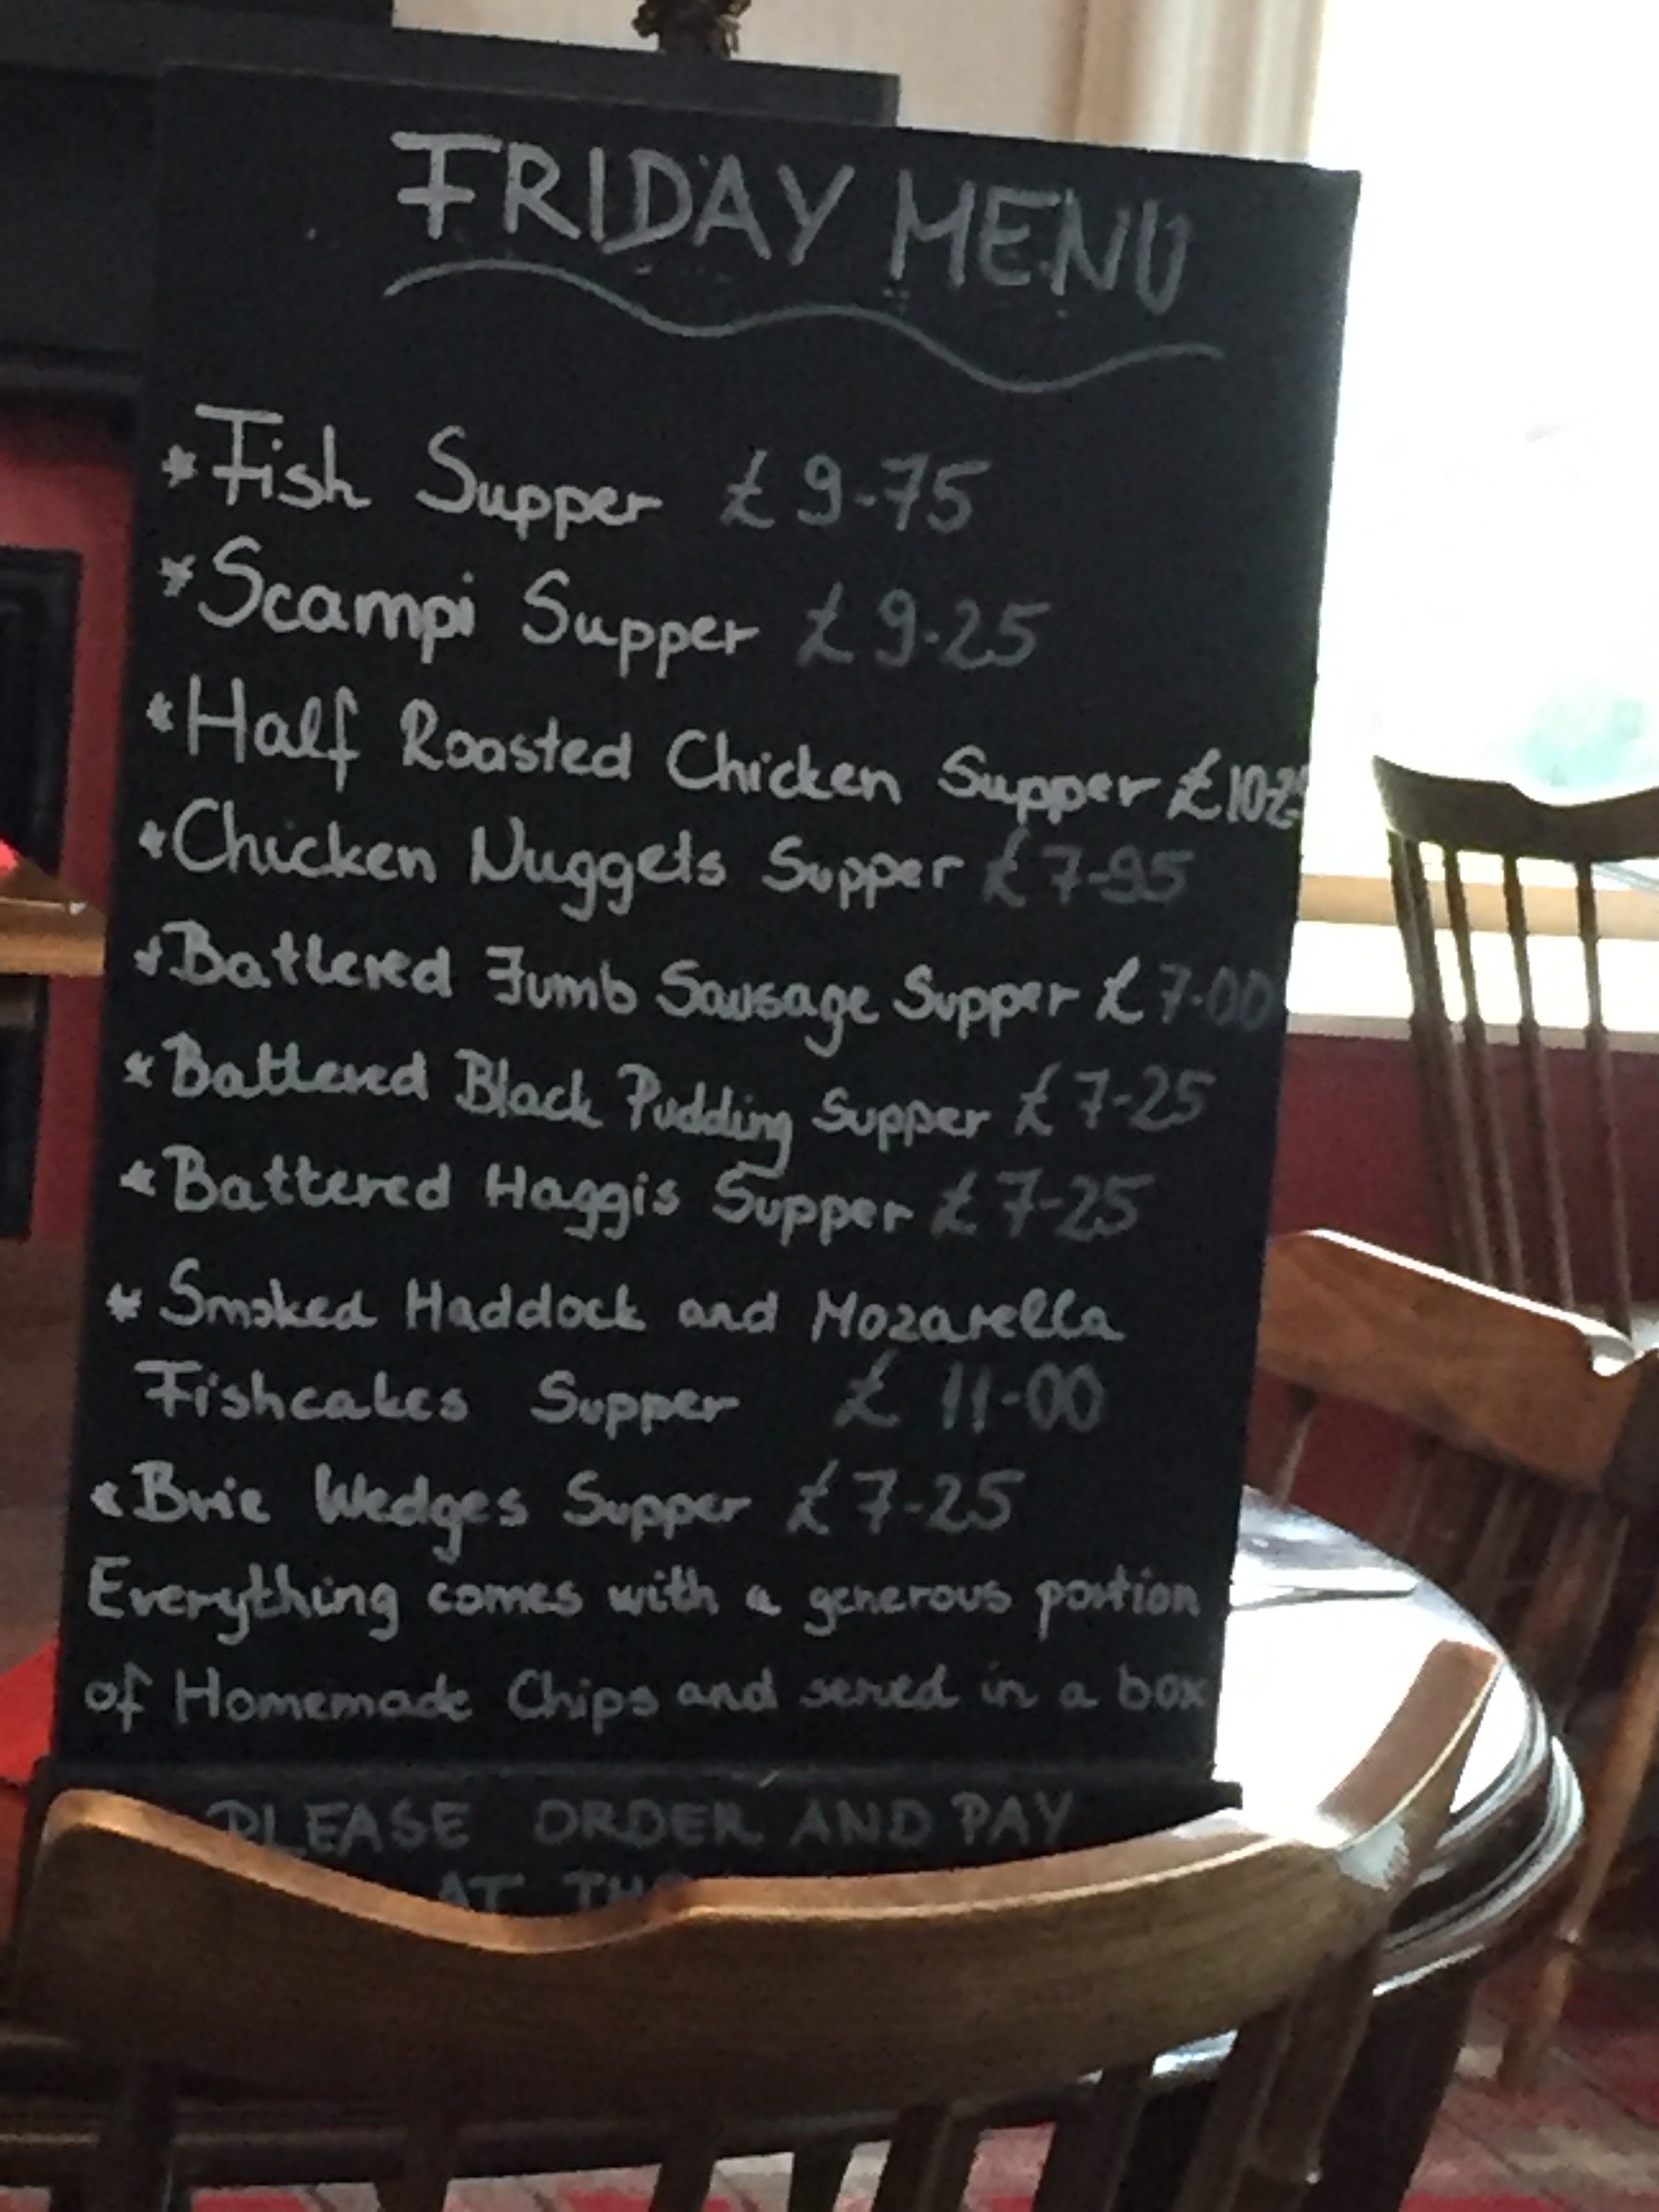 FRIDAY MENU
* Fish Supper £9-75
* Scampi Supper £9-25
* Half Roasted Chicken Supper £10-25
* Chicken Nuggets Supper £7-95
* Battered Jumb Sausage Supper £7-00
* Battered Black Pudding Supper £7-25
* Battered Haggis Supper £7-25
* Smoked Haddock and Mozarella
Fishcakes Supper £11-00
* Brie Wedges Supper £7-25
Everything comes with a generous portion
of Homemade Chips and served in a box
PLEASE ORDER AND PAY
AT THE